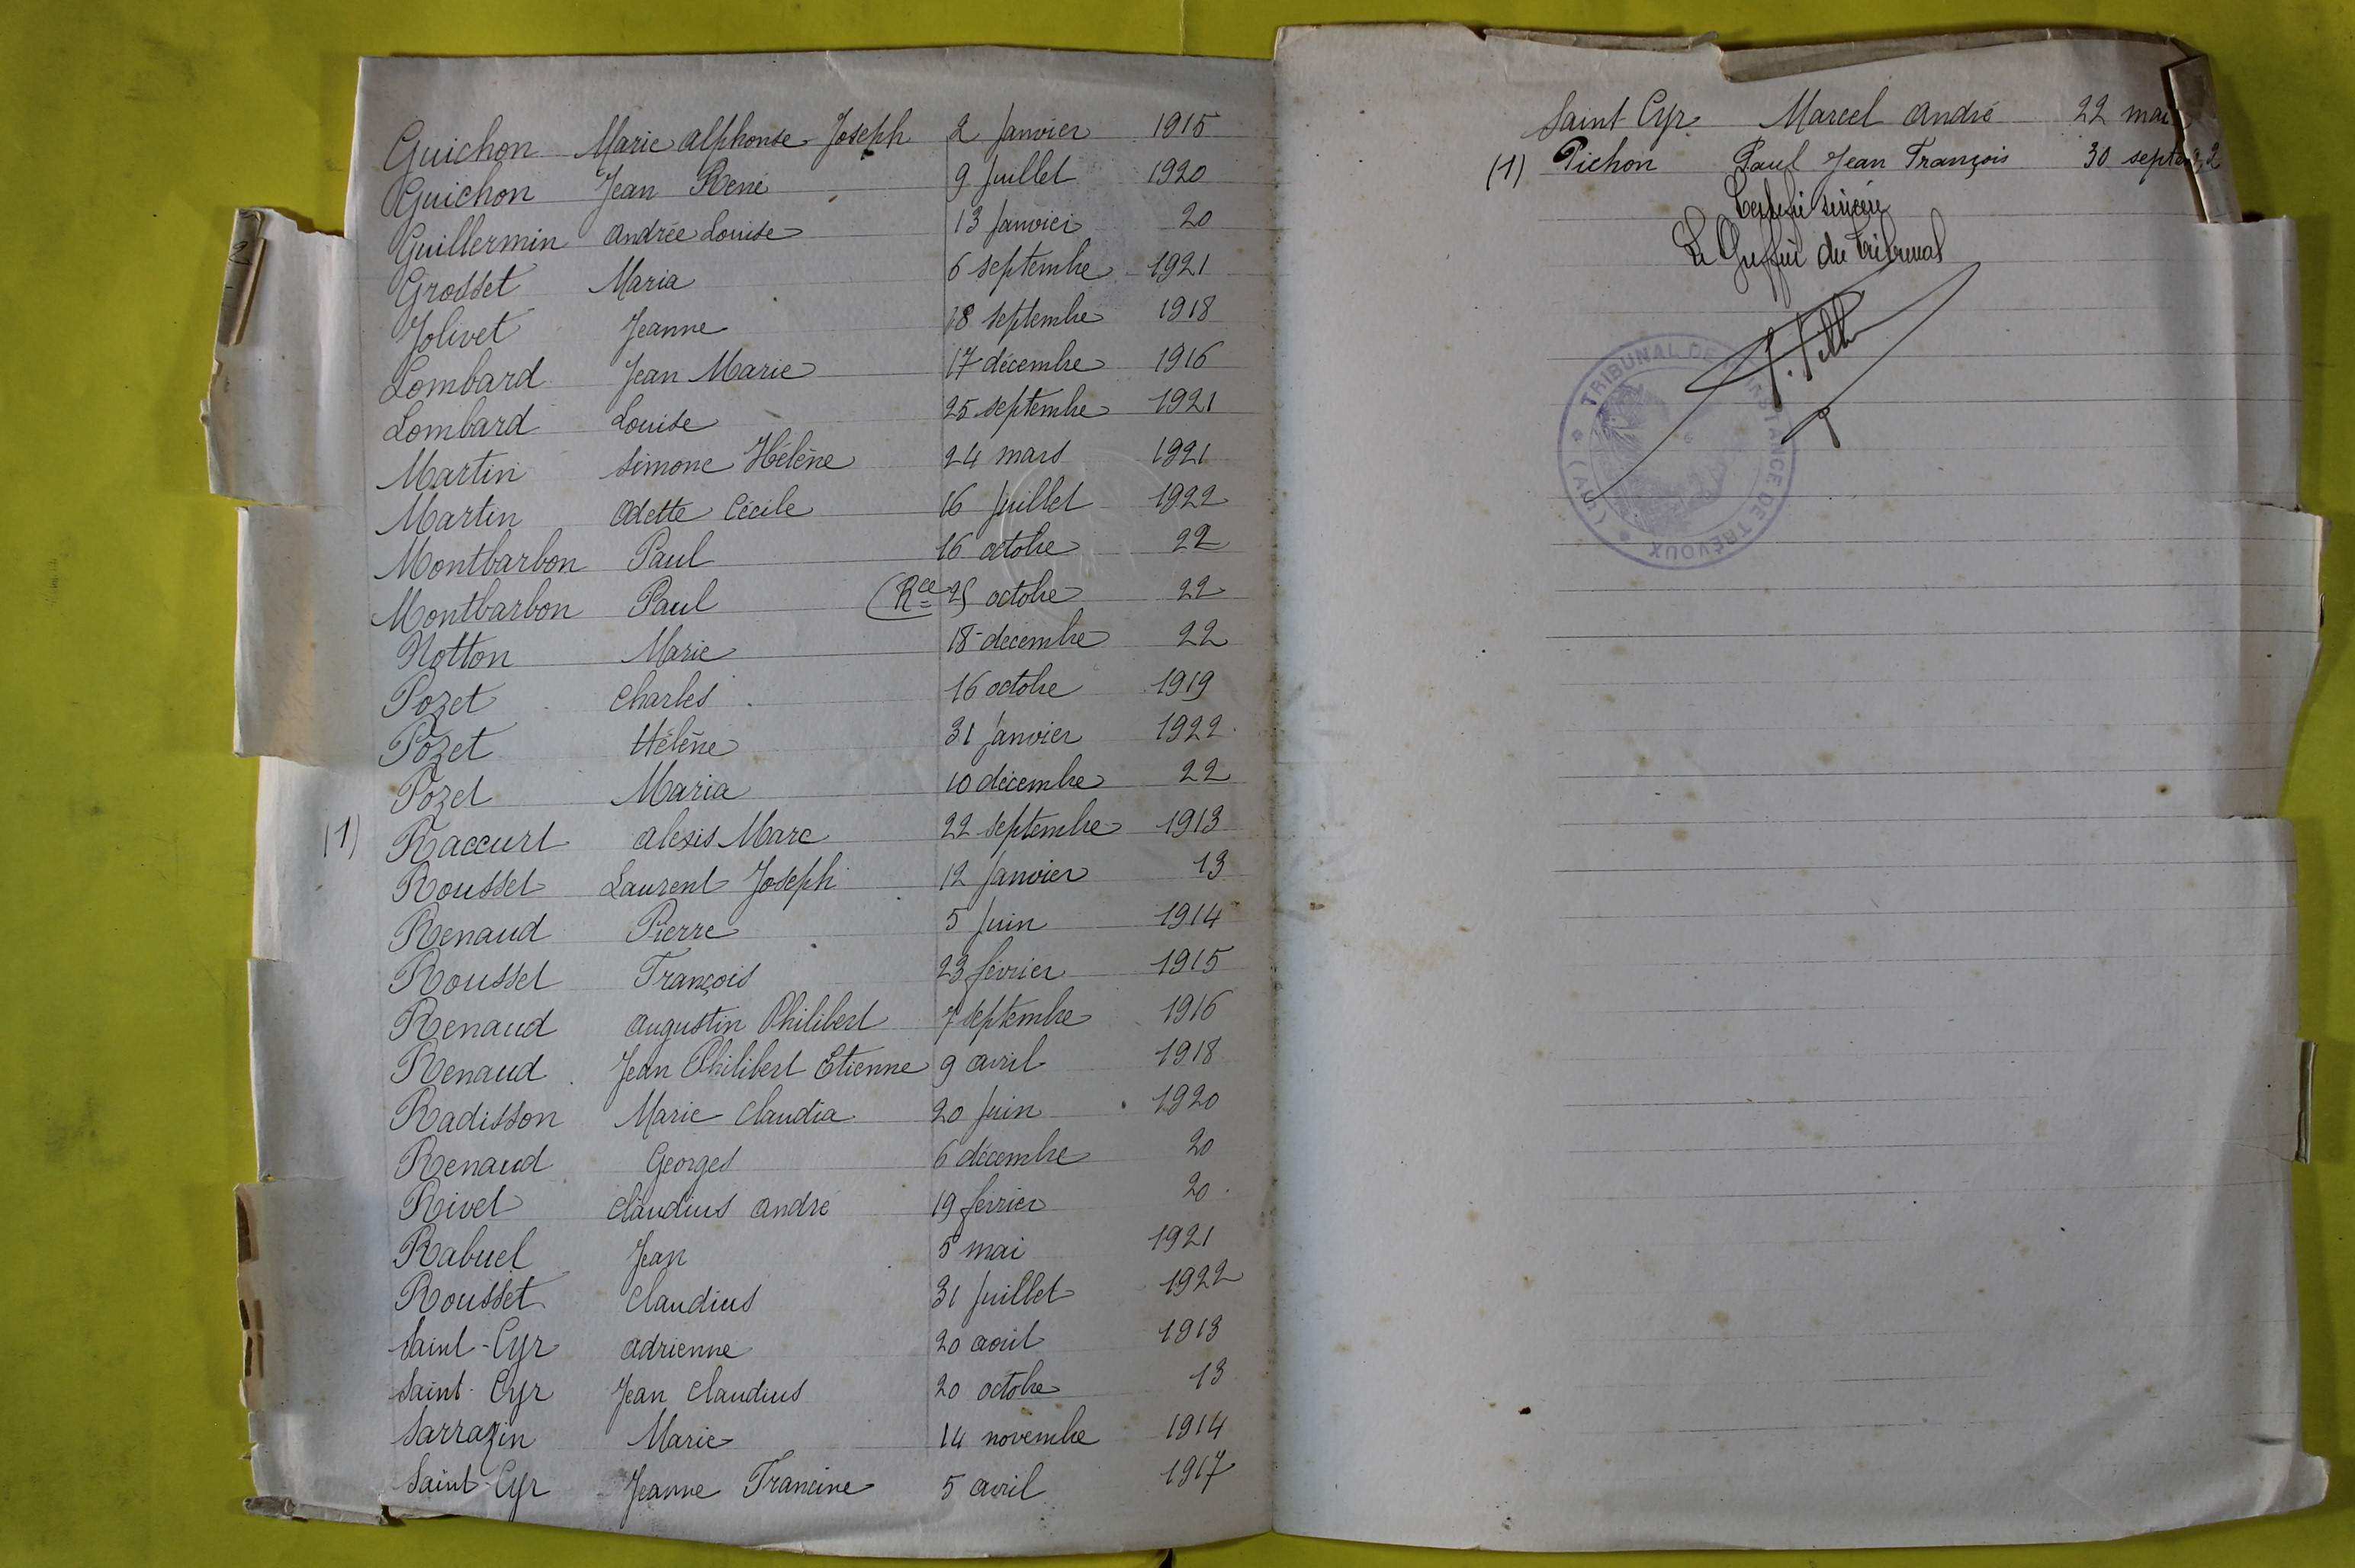 Guichon Marie Alphonse Joseph 2 Janvier 1915
Guichon Jean René 9 Juillet 1920
Guillermin Andrée Louise 13 Janvier 20
Grosset Maria 6 septembre 1921
Jolivet Jeanne 18 septembre 1918
Lombard Jean Marie 17 décembre 1916
Lombard Louise 25 septembre 1921
Martin Simone Hélène 24 mars 1921
Martin Odette Cécile 16 Juillet 1922
Montbarbon Paul 16 octobre 22
Montbarbon Paul (Rce octobre 22
Notton Marie 18 décembre 22
Pozet Charles 16 octobre 1919
Pozet Hélène 31 Janvier 1922
Pozet Maria 10 décembre 22
(1) Raccurt Alexis Marc 22 septembre 1913
Rousset Laurent Joseph 12 Janvier 13
Renaud Pierre 5 Juin 1914
Rousset François 23 février 1915
Renaud Augustin Philibert 7 septembre 1916
Renaud Jean Philibert Etienne 9 avril 1918
Radisson Marie Claudia 20 Juin 1920
Renaud Georges 6 décembre 20
Rivet Claudius André 19 février 20
Rabuel Jean 5 mai 1921
Rousset Claudius 31 Juillet 1922
Saint-Cyr Adrienne 20 août 1913
Saint-Cyr Jean Claudius 20 octobre 13
Sarrazin Marie 14 novembre 1914
Saint-Cyr Jeanne Francine 5 avril 1917
Saint-Cyr Marcel André 22 mai
(1) Pichon Paul Jean François 30 septem 22
Certifié sincère
Le Greffier du Tribunal
TRIBUNAL DE INSTANCE DE TRÉVOUX (AIN)